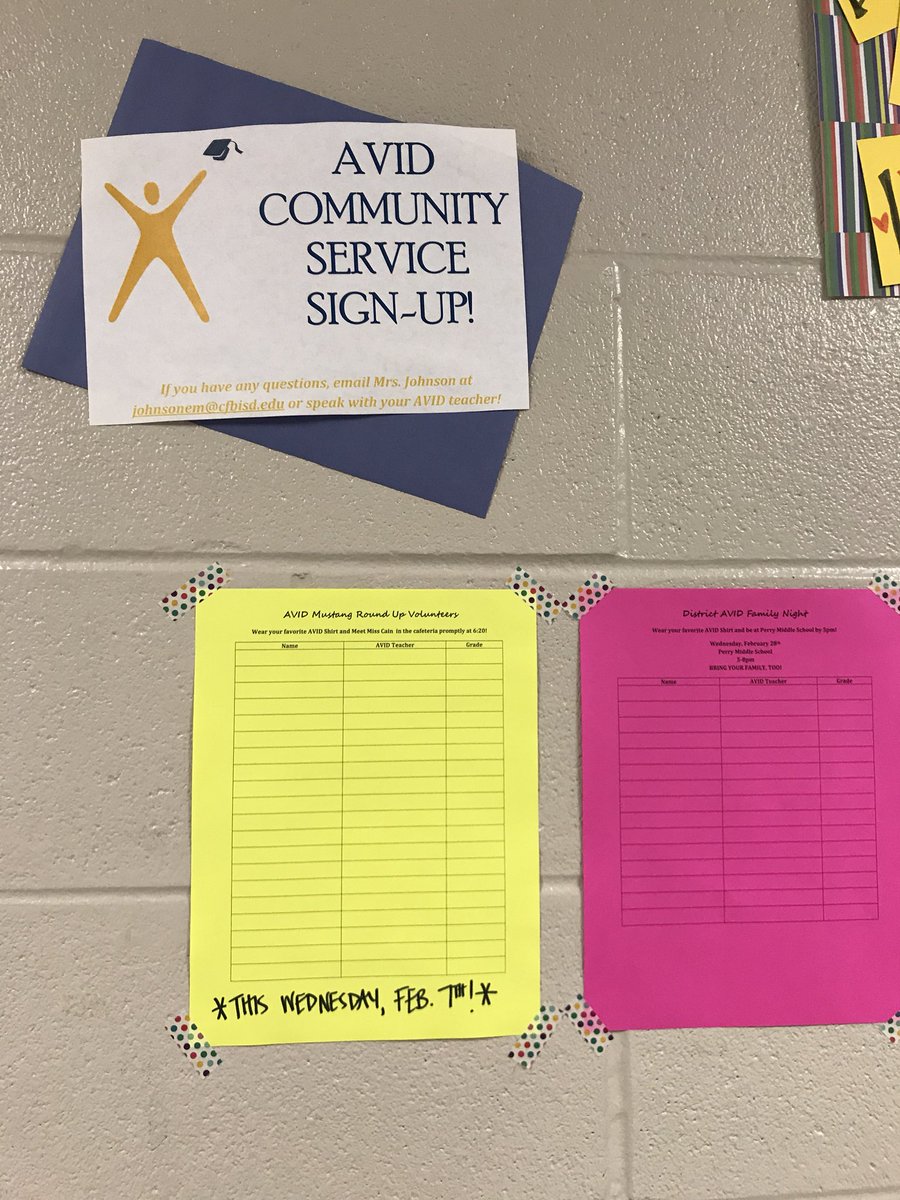 AVID
COMMUNITY
SERVICE
SIGN-UP!
If you have any questions, email Mrs. Johnson at
johnsonem@cfbisd.edu or speak with your AVID teacher!
AVID Mustang Round Up Volunteers
Wear your favorite AVID Shirt and Meet Miss Cain in the cafeteria promptly at 6:20!
Name AVID Teacher Grade
*THIS WEDNESDAY, FEB. 7TH!*
District AVID Family Night
Wear your favorite AVID Shirt and be at Perry Middle School by 5pm!
Wednesday, February 28th
Perry Middle School
5-8pm
BRING YOUR FAMILY, TOO!
Name AVID Teacher Grade